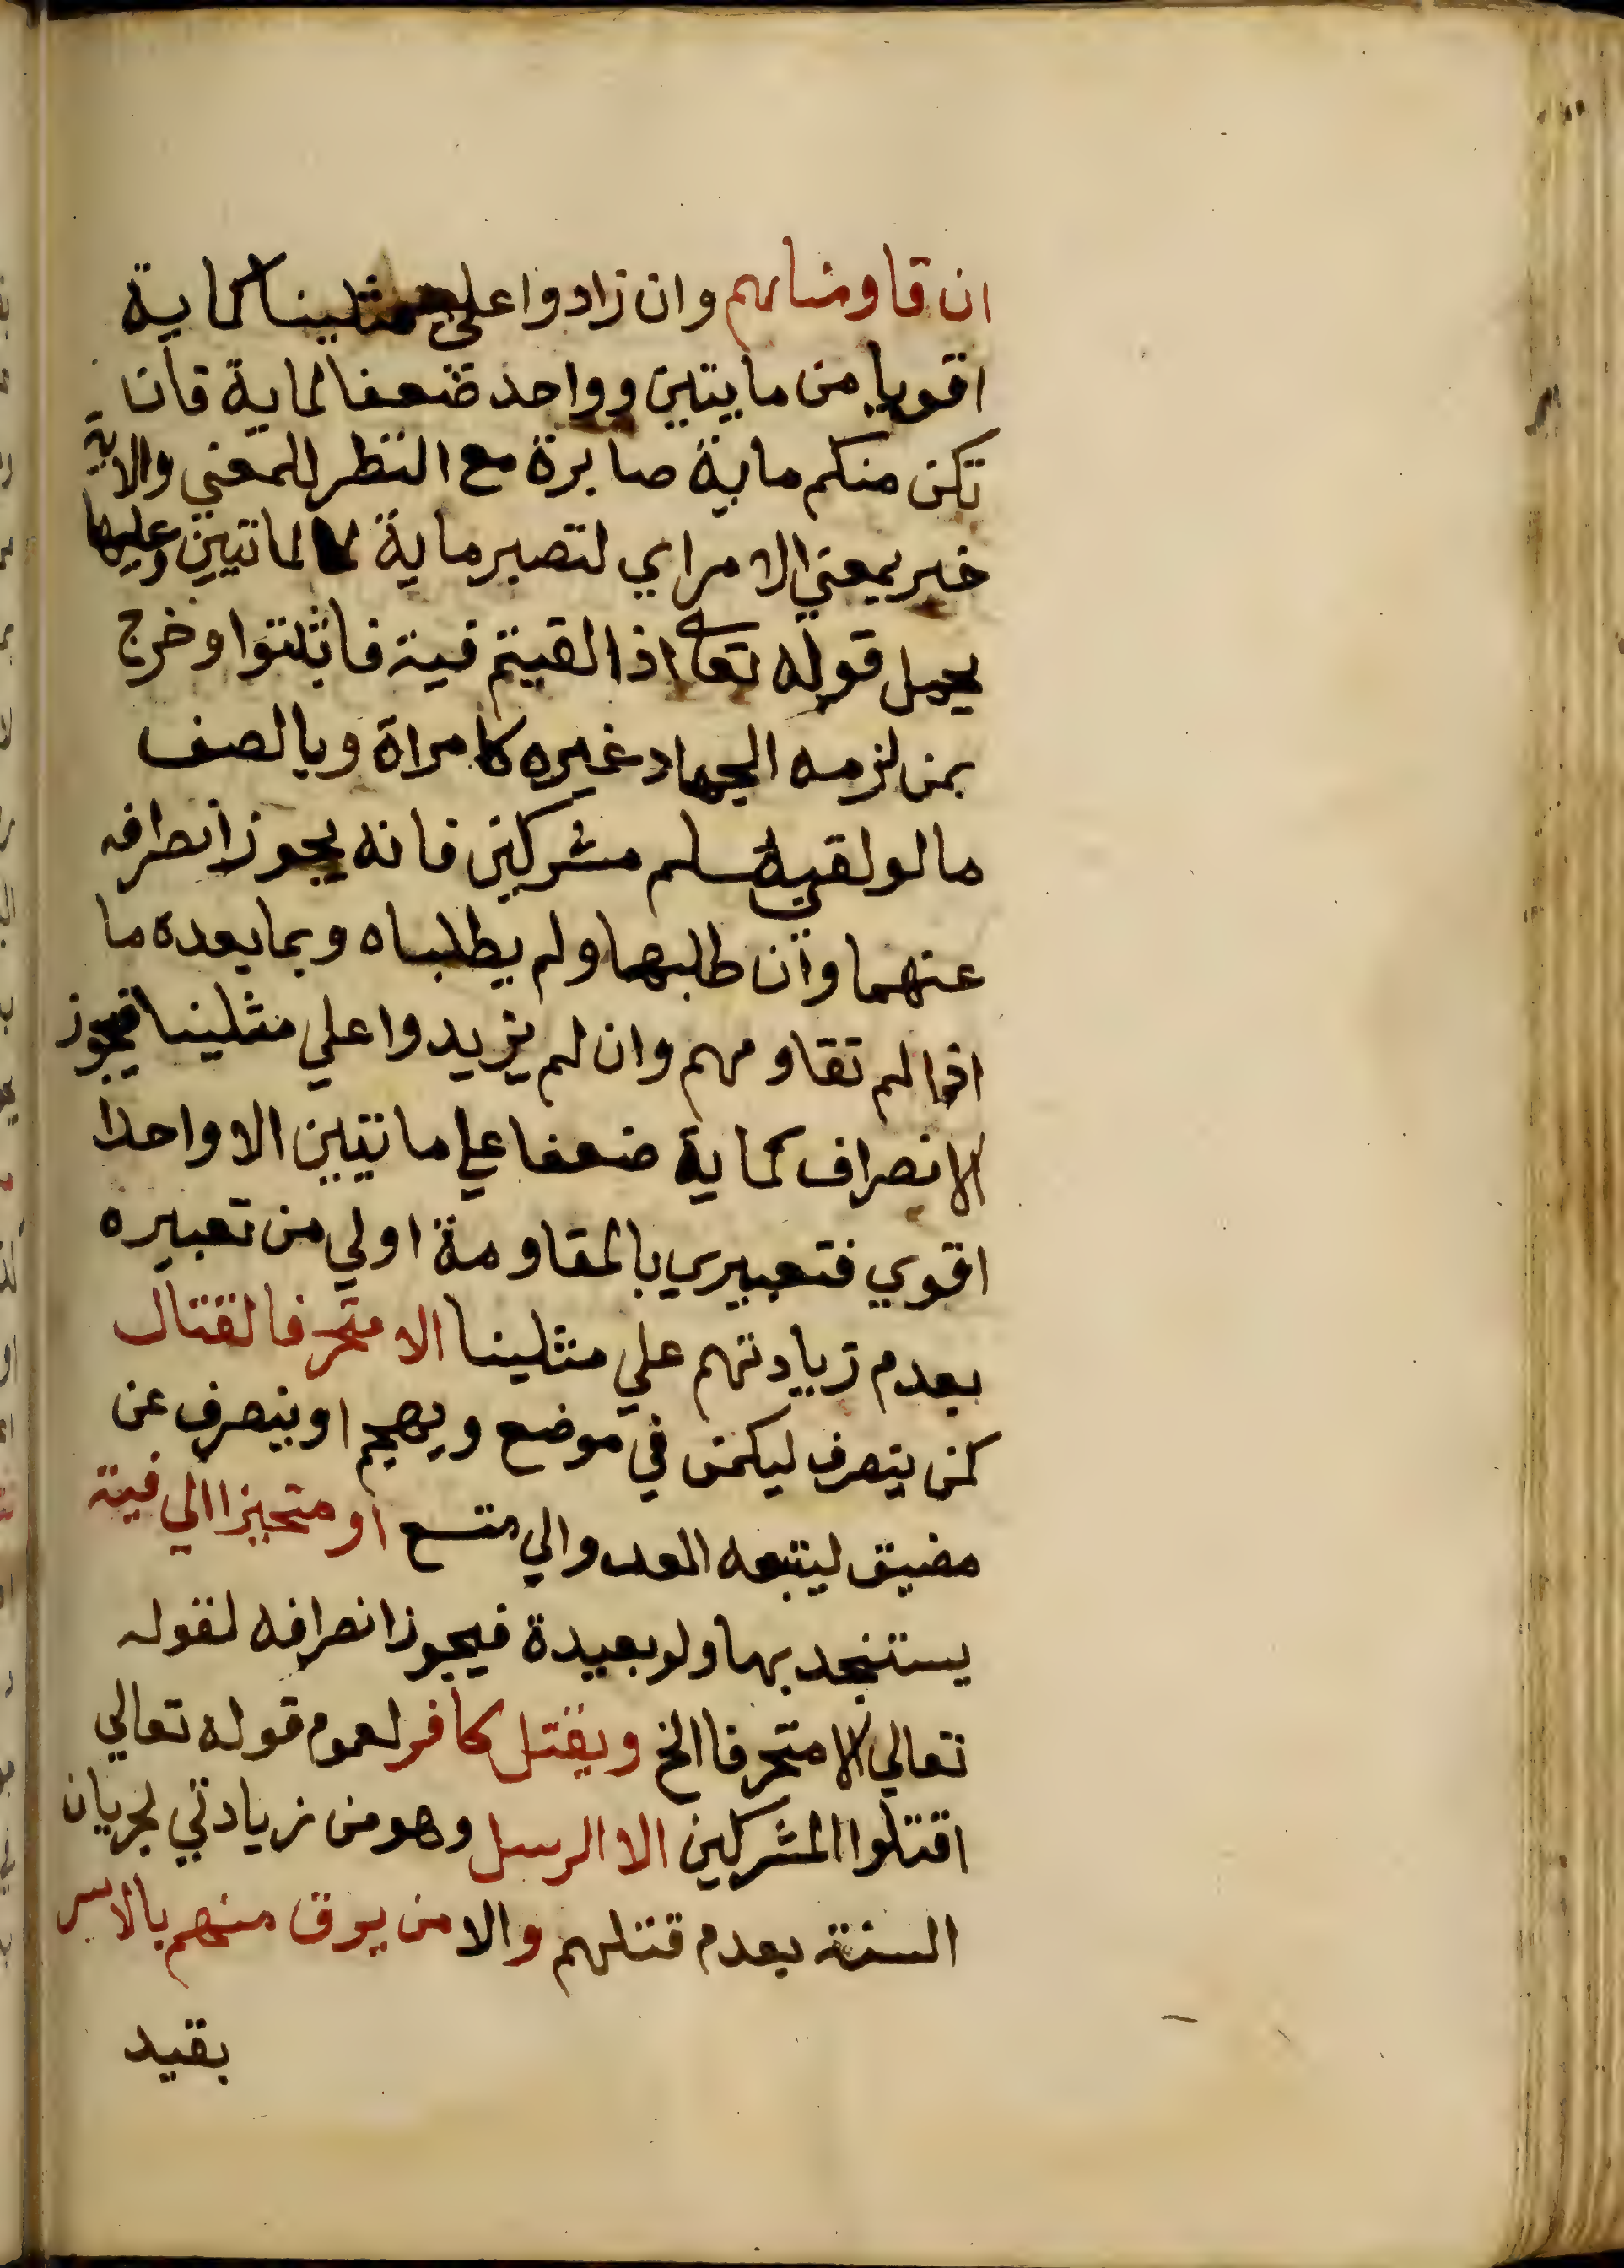 ان قاومناهم وان زادوا علي مثلينا كماية
اقويا من مايتين وواحد ضعفا لماية فان
تكن منكم ماية صابرة مع النظر للمعني والاية
خبر بمعني الامر اي لتصبر ماية لماتيين وعليها
يحمل قوله تعا اذا لقيتم فية فاثبتوا وخرج
بمن لزمه الجهاد غيره كامراة وبالصف
ما لو لقي مسلم مشركين فانه يجوز انصرافه
عنهما وان طلبهما ولم يطلباه وبما بعده ما
اذا لم تقاومهم وان لم يزيدوا علي مثلينا فيجوز
الانصراف كماية ضعفا علي ماتيين الا واحدا
اقوي فتعبيري بالمقاومة اولي من تعبيره
بعدم زيادتهم علي مثلينا الا متحرفا لقتال
كمن ينصرف ليكمن في موضع ويهجم او ينصرف عن
مضيق ليتبعه العدو الي متسع او متحيزا الي فية
يستنجد بها ولو بعيدة فيجوز انصرافه لقوله
تعالي الا متحرفا الخ ويقتل كافر لعموم قوله تعالي
اقتلوا المشركين الا الرسل وهو من زيادتي لجريان
السنة بعدم قتلهم والا من يرق منهم بالاسر
بقيد